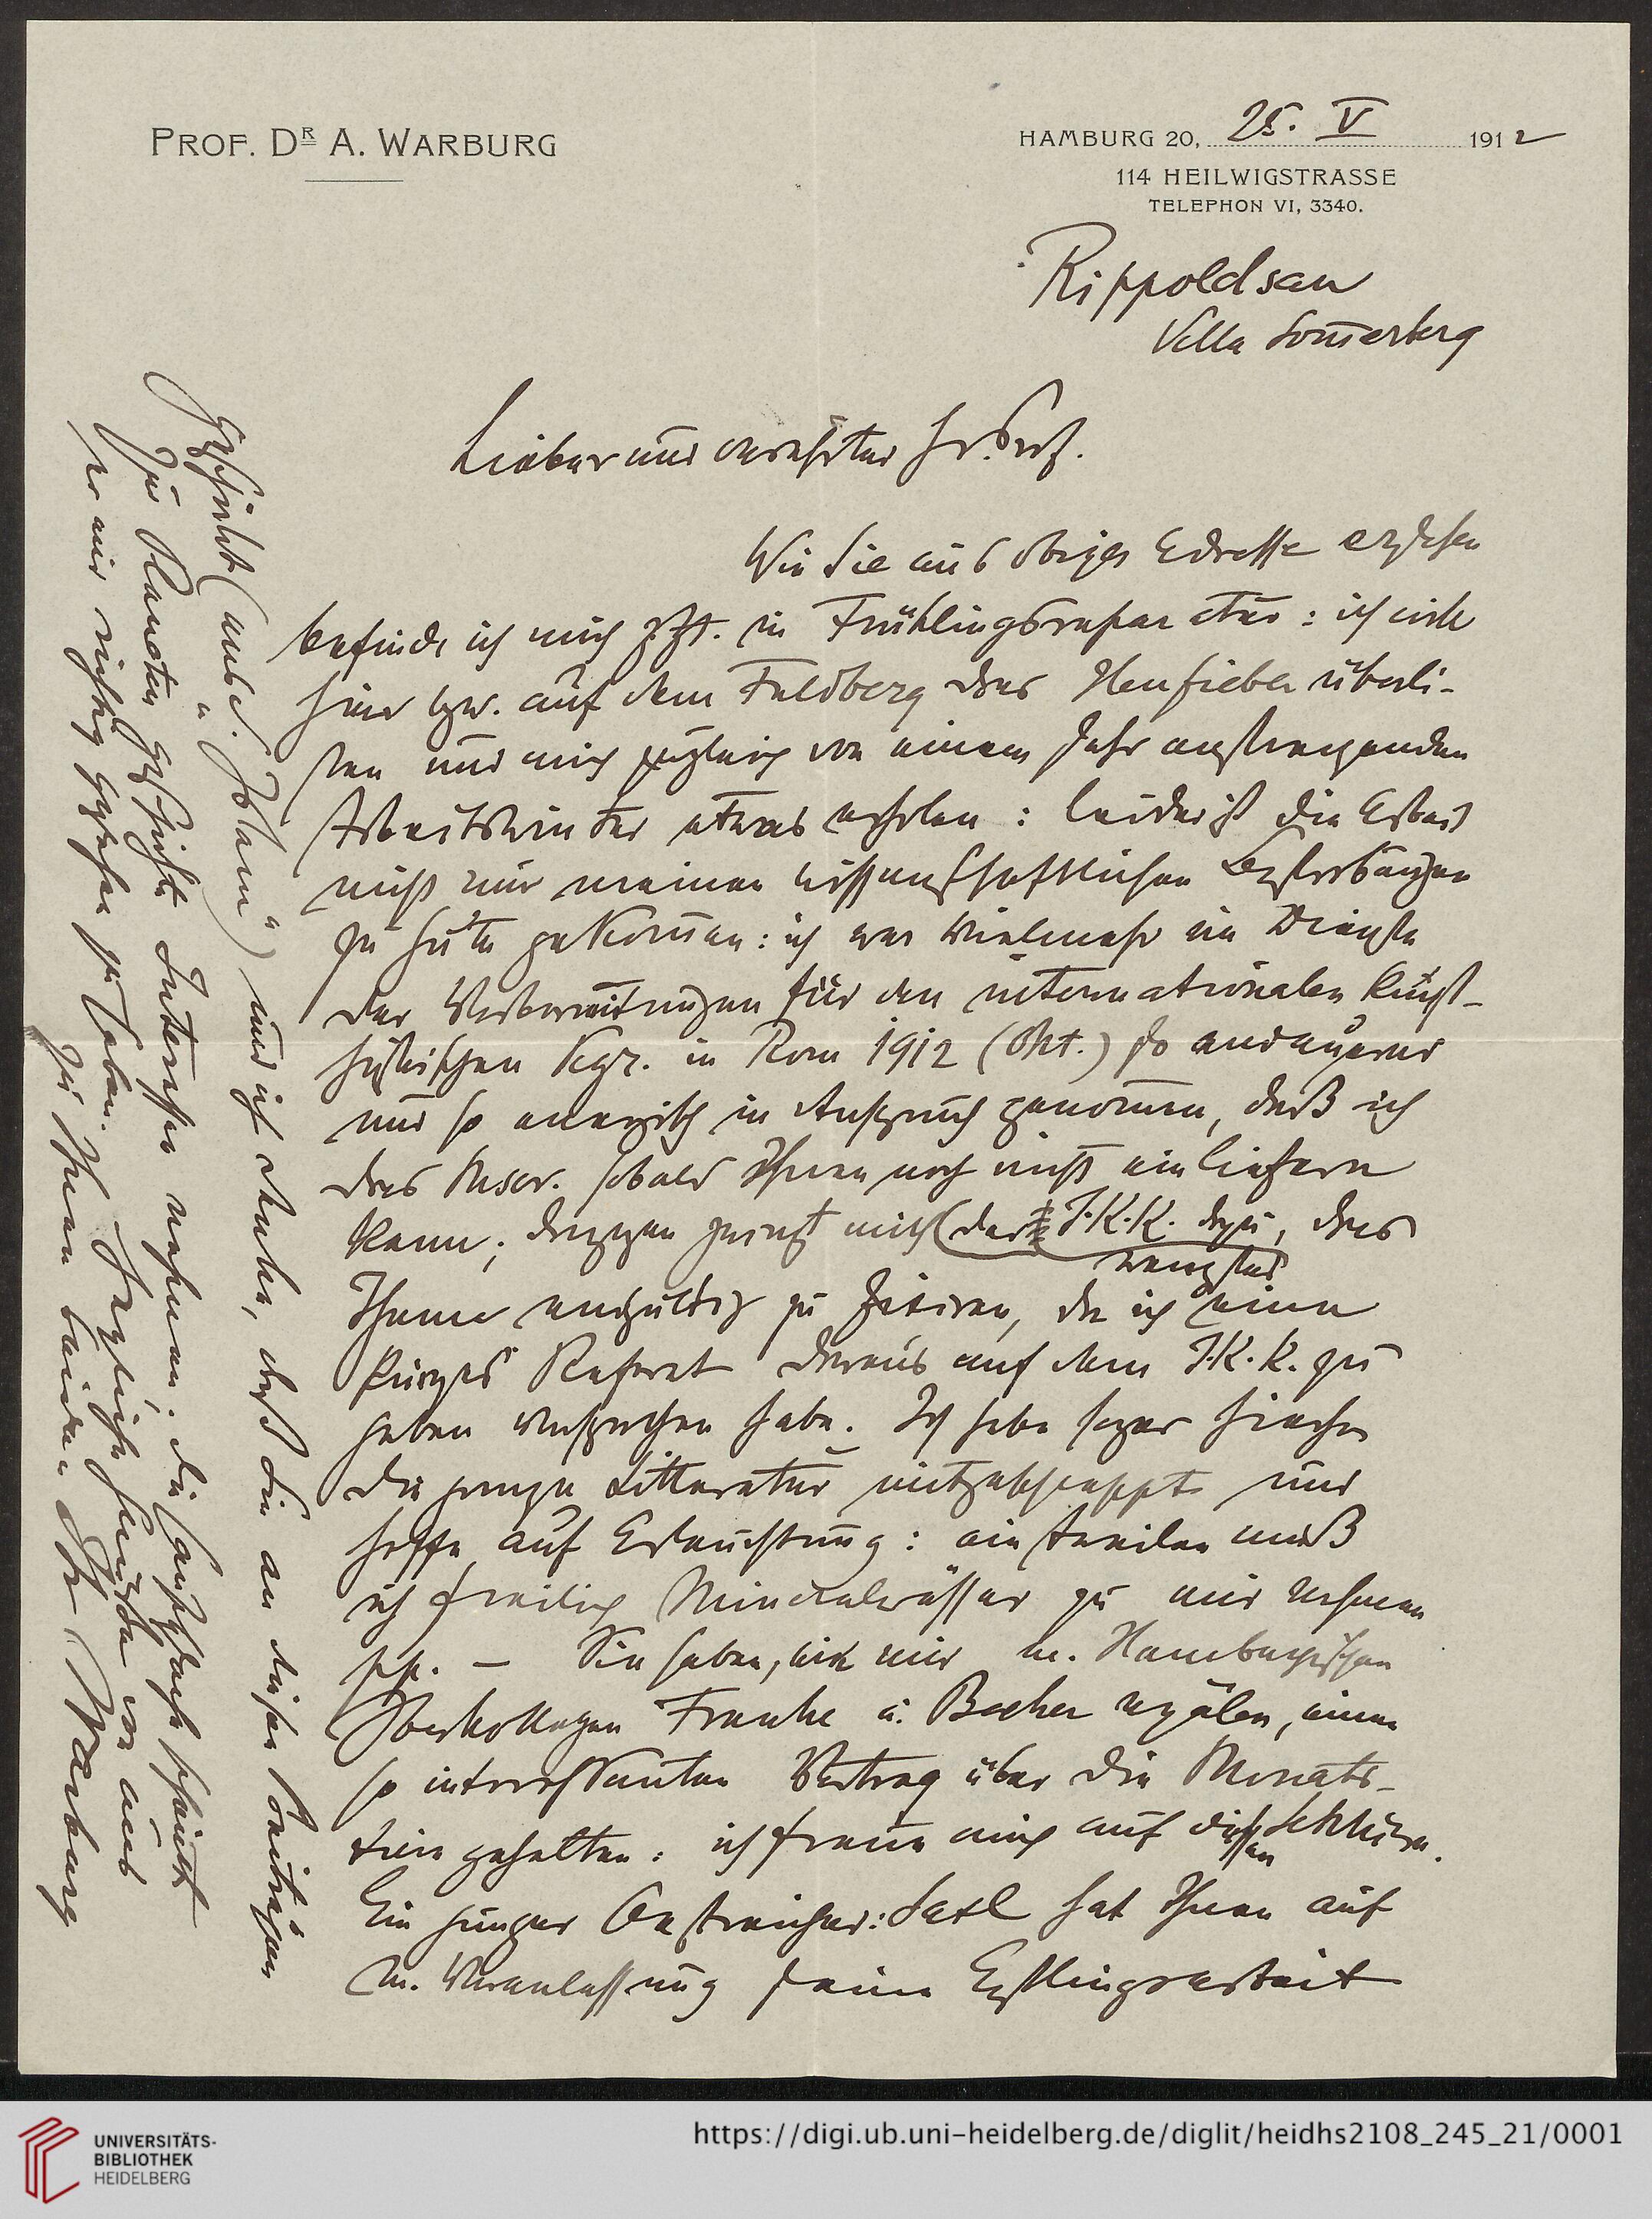 PROF. DR A. WARBURG
HAMBURG 20, 25. V 1912
114 HEILWIGSTRASSE
TELEPHON VI, 3340.
Rippoldsau
Villa Som̄erberg
Lieber und verehrter Hr. Prof.
Wie Sie aus obiger Adresse ersehen
befinde ich mich z.Zt. in Frühlingsreparatur: ich will
hier bzw. auf dem Feldberg das Heufieber überli-
sten und mich zugleich von einem sehr anstrengenden
Arbeitswinter etwas erholen: leider ist die Arbeit
nicht nur meinen wissenschaftlichen Bestrebungen
zu Gute gekom̄en: ich war vielmehr im Dienste
der Vorbereitungen für den internationalen Kunst-
historischen Kgr. in Rom 1912 (Okt.) so andauernd
und so energisch in Anspruch genom̄en, daß ich
das Mscr. sobald Ihnen noch nicht einliefern
kann; dagegen zwingt mich (der I.K.K. dazu, das
Thema endgültig zu fixiren, da ich wenigstens einen
kurzes Referat daraus auf dem I.K.K. zu
geben versprochen habe. Ich habe sogar hierher
die ganze Litteratur mitgeschleppt und
hoffe auf Erleuchtung: einstweilen muß
ich freilich Mineralwässer zu mir nehmen
pp. – Sie haben, wie mir m. Hamburgischen
Franke u. Becker erzälen, einen
so interessanten Vortrag über die Monats-
tiere gehalten: ich freue mich auf dessen Lektüre.
Ein junger Oestreicher: Saxl hat Ihnen auf
m. Veranlassung seine Erstlingsarbeit
geschickt und ich denke, daß Sie an diesen Beiträgen
zur Planeten Geschichte Interesse nehmen; die
er mir richtig gesehen zu haben. Herzliche Grüße von Haus
zu Ihnen beiden Ihr Warburg
UNIVERSITÄTS-
BIBLIOTHEK
HEIDELBERG
https://digi.ub.uni-heidelberg.de/diglit/heidhs2108_245_21/0001